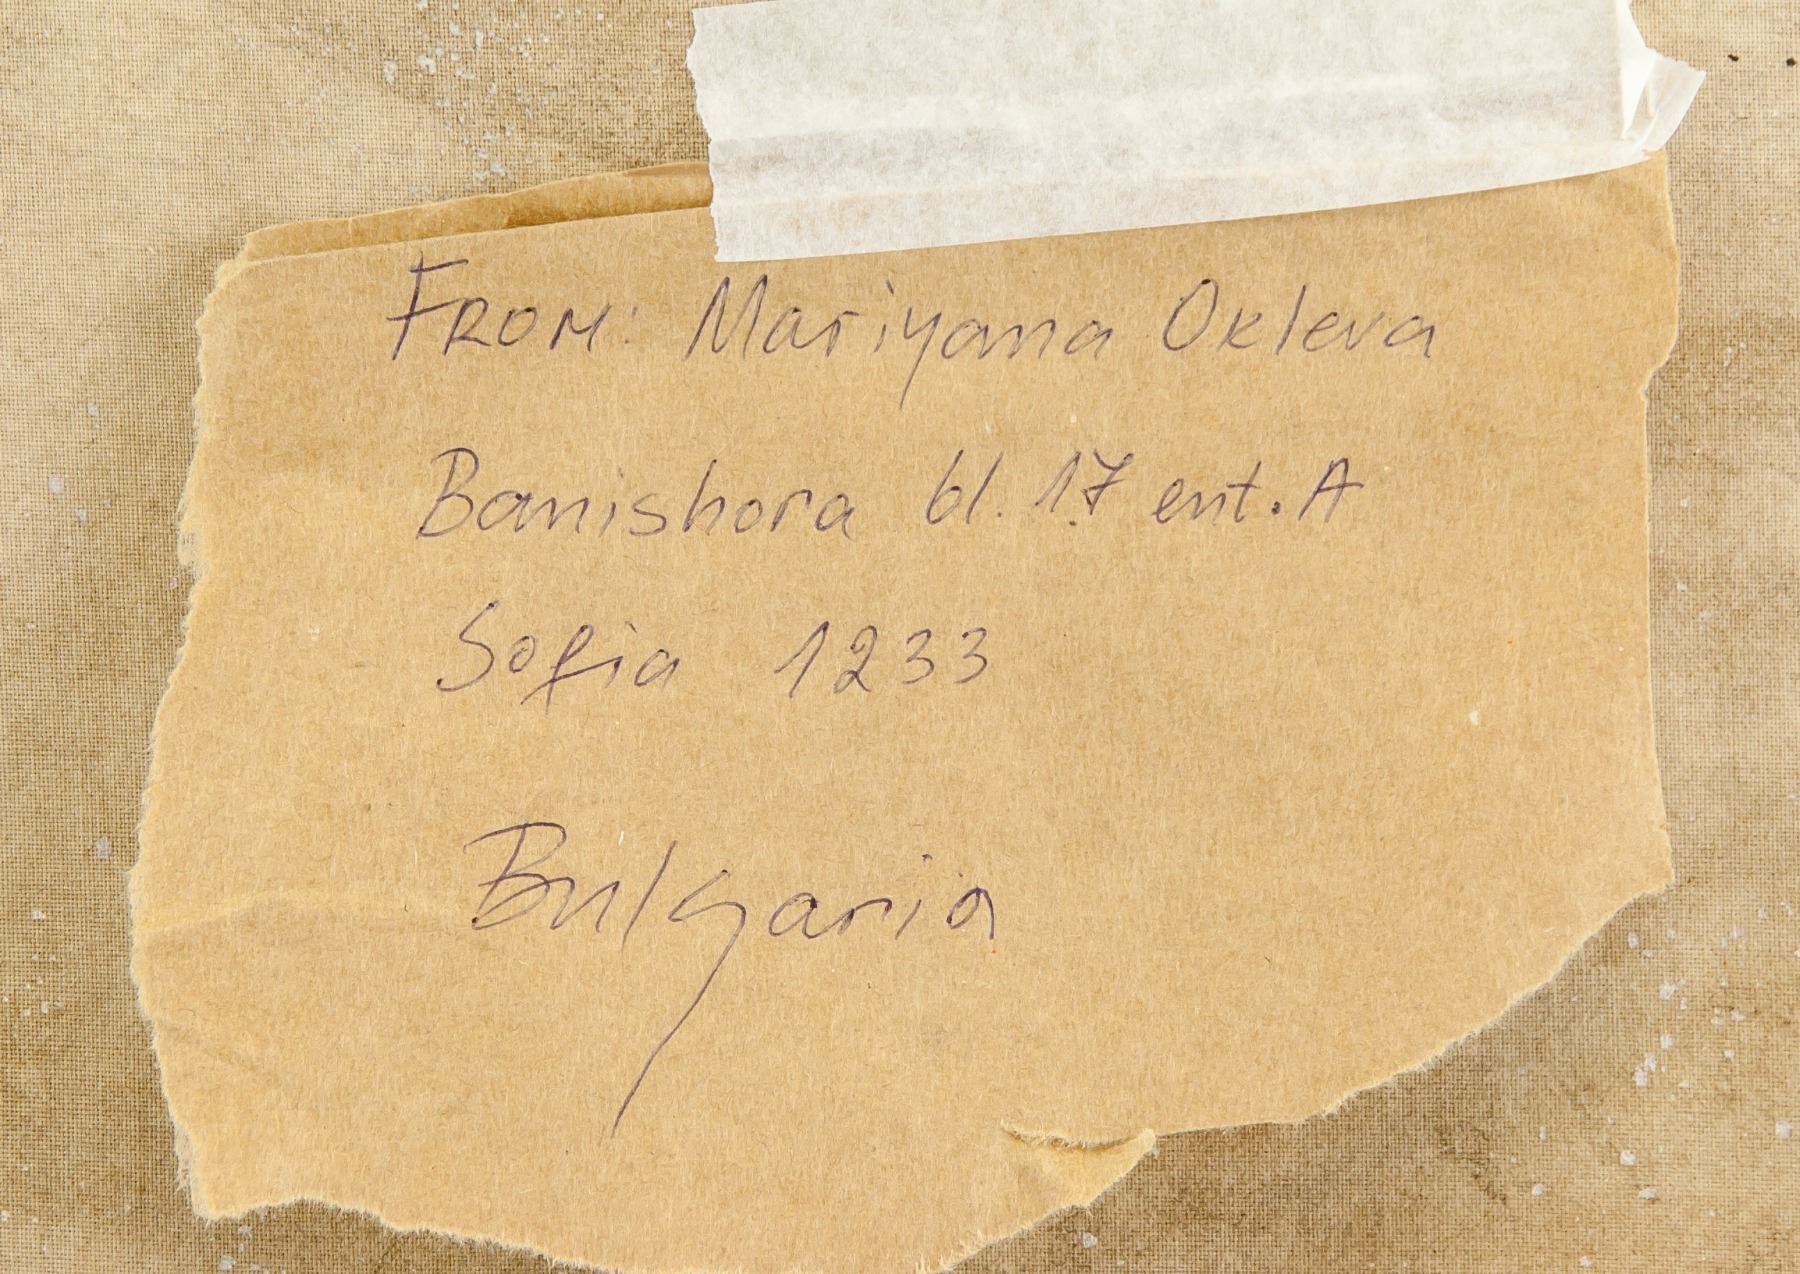 FROM: Mariyana Okleva
Banishora bl. 17 ent. A
Sofia 1233
Bulgaria